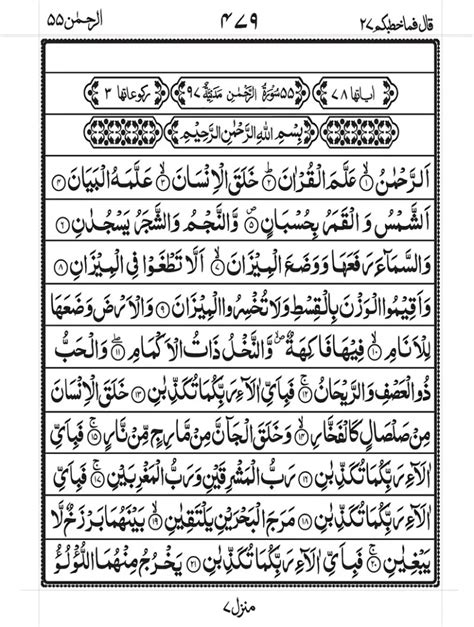 قال فماخطبکم ۲۷ ۴۷۹ الرحمٰن ۵۵
اٰیاتھا ۷۸ ۵۵ سُوْرَۃُ الرَّحْمٰنِ مَدَنِیَّۃٌ ۹۷ رکوعاتھا ۳
بِسْمِ اللّٰہِ الرَّحْمٰنِ الرَّحِیْمِ
اَلرَّحْمٰنُ ۙ﴿۱﴾ عَلَّمَ الْقُرْاٰنَ ؕ﴿۲﴾ خَلَقَ الْاِنْسَانَ ۙ﴿۳﴾ عَلَّمَہُ الْبَیَانَ ﴿۴﴾
اَلشَّمْسُ وَ الْقَمَرُ بِحُسْبَانٍ ﴿۵﴾ وَّالنَّجْمُ وَالشَّجَرُ یَسْجُدٰنِ ﴿۶﴾
وَالسَّمَآءَ رَفَعَھَا وَوَضَعَ الْمِیْزَانَ ۙ﴿۷﴾ اَلَّا تَطْغَوْا فِی الْمِیْزَانِ ﴿۸﴾
وَاَقِیْمُوا الْوَزْنَ بِالْقِسْطِ وَلَا تُخْسِرُوا الْمِیْزَانَ ﴿۹﴾ وَالْاَرْضَ وَضَعَھَا
لِلْاَنَامِ ۙ﴿۱۰﴾ فِیْھَا فَاکِھَۃٌ ۪ۙ وَّالنَّخْلُ ذَاتُ الْاَکْمَامِ ﴿۱۱﴾ وَالْحَبُّ
ذُوالْعَصْفِ وَالرَّیْحَانُ ۚ﴿۱۲﴾ فَبِاَیِّ اٰلَآءِ رَبِّکُمَا تُکَذِّبٰنِ ﴿۱۳﴾ خَلَقَ الْاِنْسَانَ
مِنْ صَلْصَالٍ کَالْفَخَّارِ ۙ﴿۱۴﴾ وَخَلَقَ الْجَآنَّ مِنْ مَّارِجٍ مِّنْ نَّارٍ ۚ﴿۱۵﴾ فَبِاَیِّ
اٰلَآءِ رَبِّکُمَا تُکَذِّبٰنِ ﴿۱۶﴾ رَبُّ الْمَشْرِقَیْنِ وَرَبُّ الْمَغْرِبَیْنِ ۚ﴿۱۷﴾ فَبِاَیِّ
اٰلَآءِ رَبِّکُمَا تُکَذِّبٰنِ ﴿۱۸﴾ مَرَجَ الْبَحْرَیْنِ یَلْتَقِیٰنِ ۙ﴿۱۹﴾ بَیْنَھُمَا بَرْزَخٌ لَّا
یَبْغِیٰنِ ۚ﴿۲۰﴾ فَبِاَیِّ اٰلَآءِ رَبِّکُمَا تُکَذِّبٰنِ ﴿۲۱﴾ یَخْرُجُ مِنْھُمَا اللُّؤْلُؤُ
منزل ۷